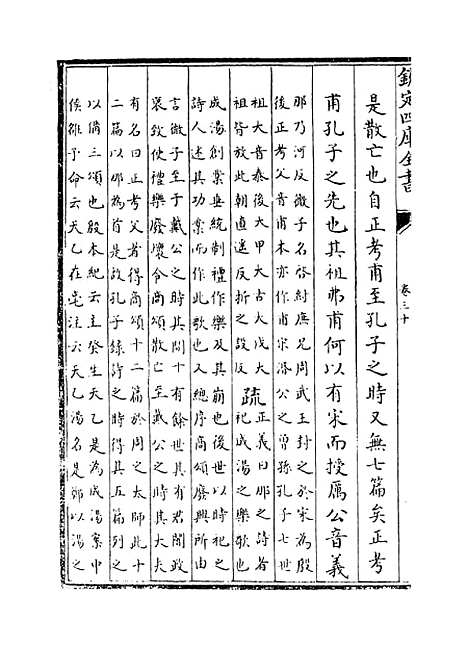 欽定四庫全書
卷三十
是散亡也自正考甫至孔子之時又無七篇矣正考
甫孔子之先也其祖弗甫何以有宋而授厲公音義
那乃河反微子名啓紂庶兄周武王封之於宋為殷
後正考父音甫本亦作甫宋湣公之曾孫孔子七世
祖大音泰後大甲大古大戊大
祖皆放此朝直遙反折之設反
疏
正義曰那之詩者
祀成湯之樂歌也
成湯創業垂統制禮作樂及其崩也後世以時祀之
詩人述其功業而作此歌也又總序商頌廢興所由
言微子至于戴公之時其間十有餘世其有君闇政
衰致使禮樂廢壞令商頌散亡至戴公之時其大夫
有名曰正考父者得商頌十二篇於周之太師此十
二篇以那為首是故孔子錄詩之時得其五篇列之
以備三頌也殷本紀云主癸生天乙是為成湯案中
侯雒予命云天乙在亳注云天乙湯名是鄭以湯之